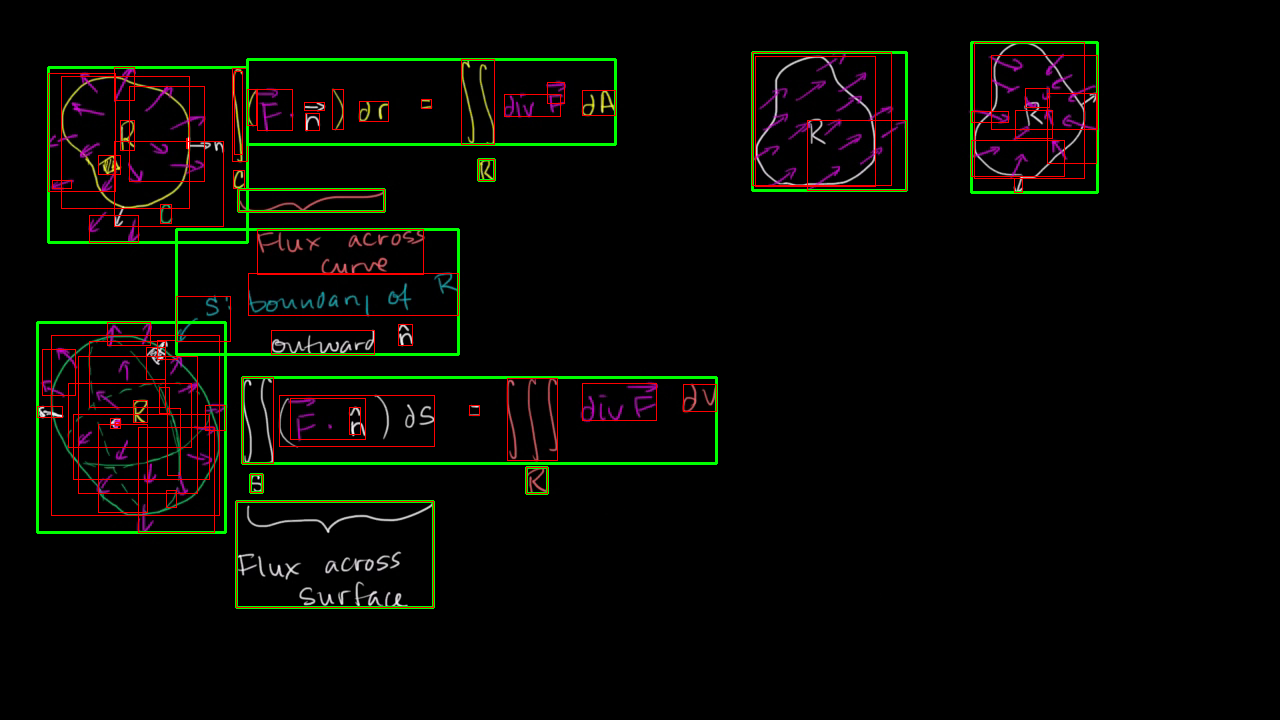 R
n
C
∮_C (F⃗ · n⃗) dr = ∬_R div F⃗ dA
Flux across
curve
S: boundary of R
outward n̂
R
n
∬_S (F⃗ · n̂) dS = ∭_R div F⃗ dV
Flux across
surface
R
R